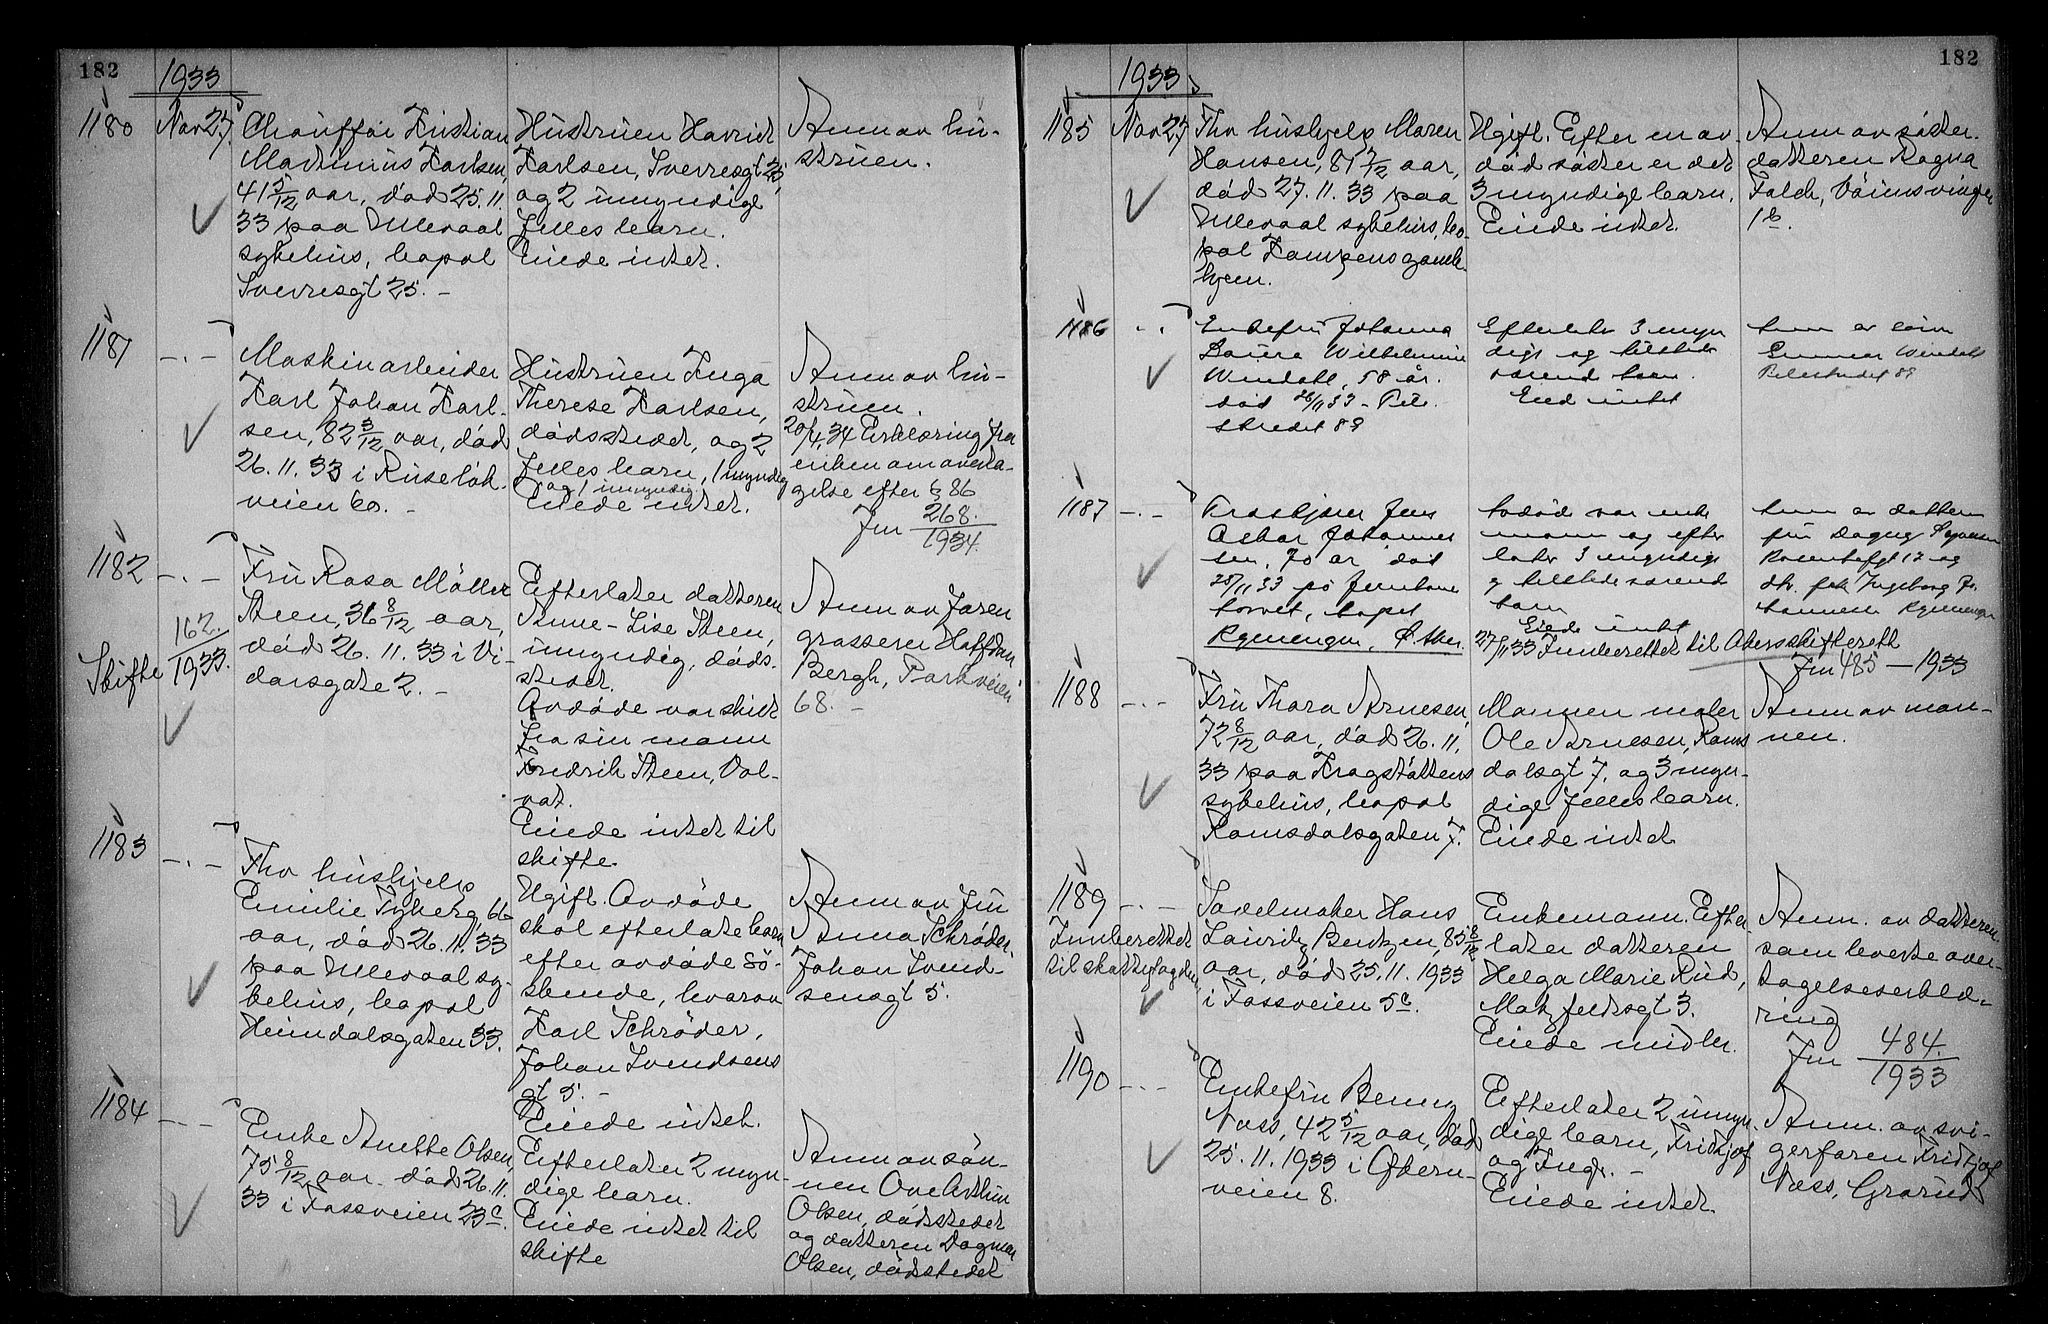 182
1933
1180
Nov 27.
Chauffør Kristian
Martinius Karlsen,
41 5/12 aar, død 25. 11.
33 paa Ullevaal
sykehus, bopæl
Sverresgt 25. -
Hustruen Havrid
Karlsen, Sverresgt 25,
og 2 umyndige
felles barn.
Eiede intet.
Anm av hu-
struen.
1181
-.-
Maskinarbeider
Karl Johan Karl-
sen, 82 3/12 aar, død
26. 11. 33 i Ruseløk-
veien 60. -
Hustruen Inga
Therese Karlsen,
dødsstedet, og 2
felles barn, 1 myndig
og 1 umyndig
Eiede intet.
Anm av hu-
struen.
20/4.34 Erklæring fra
enken om overta-
gelse efter § 86
Jnr 268. / 1934.
1182
-.-
Skifte 162. / 1933.
Fru Rosa Møller
Steen, 36 8/12 aar,
død 26. 11. 33 i Vi-
darsgate 2. -
Efterlater datteren
Anne-Lise Steen,
umyndig, døds-
stedet.
Avdøde var skilt
fra sin mann
Fredrik Steen, Vol-
vat.
Eiede intet til
skifte.
Anm av faren
grosserer Halfdan
Bergh, Parkveien
68. -
1183
-.-
Fhv hushjelp
Emilie Fyberg 66
aar, død 26. 11. 33
paa Ullevaal sy-
kehus, bopæl
Heimdalsgaten 33.
Ugift. Avdøde
skal efterlate barn
efter avdøde sø-
skende, hvorav
Karl Schrøder,
Johan Svendsens
gt 5. -
Eiede intet.
Anm av fru
Anna Schrøder,
Johan Svend-
sensgt 5.
1184
-.-
Enke Anette Olsen,
75 8/12 aar. død 26. 11.
33 i Fossveien 23 c.
Efterlater 2 myn-
dige barn.
Eiede intet til
skifte
Anm av søn-
nen Ove Arthur
Olsen, dødsstedet
og datteren Dagmar
Olsen, dødsstedet
182
1933
1185
Nov 27
Fhv hushjelp Maren
Hansen, 81 7/12 aar,
død 27. 11. 33 paa
Ullevaal sykehus, bo-
pæl Kampens gamle
hjem.
Ugift. Efter en av-
død søster er det
3 myndige barn.
Eiede intet.
Anm av søster-
datteren Ragna
Falch, Vøiensvingen
16.
1186
-.-
Enkefru Johanna
Laura Wilhelmine
Windahl, 58 år.
død 26/11 33 - Pile-
stredet 89
Efterlater 3 myn
dige og tilstede
værende barn.
Eied intet
Anm av sønn
Gunnar Windahl
Pilestredet 89
1187
-.-
Jens
Oskar Johannes
sen, 70 år død
25/11 33 på Jernbane
torvet, bopæl
avdøde var enke
mann og efter
later 3 myndige
og tilstedeværende
barn
Eiede intet
Anm av datteren
fru Dagny
17 og
Ingeborg Jo
hannessen
27/11 33 Innberettet til Akers skifterett
Jnr 485 - 1933
1188
-.-
Fru Thora Arnesen,
72 8/12 aar, død 26. 11.
33 paa Krogstøttens
sykehus, bopæl
Romsdalsgaten 7.
Mannen maler
Ole Arnesen, Roms
dalsgt 7, og 3 myn-
dige felles barn.
Eiede intet
Anm av man-
nen.
1189
-.-
Innberettet
til skattefogden
Sadelmaker Hans
Lauritz Berntzen, 85 8/12
aar, død 25. 11. 1933
i Fossveien 5 c.
Enkemann. Efter-
later datteren
Helga Marie Rud,
Motzfeldtsgt 3.
Eiede midler.
Anm. av datteren
som leverte over-
tagelseserklæ-
ring
Jnr 484. / 1933
1190
-.-
Enkefru Benny
Næss, 42 5/12 aar, død
25. 11. 1933 i
veien 8.
Efterlater 2 umyn-
dige barn, Fridtjof
og Inger. -
Eiede intet.
Anm. av svi-
gerfaren Fridtjof
Næss, Grorud